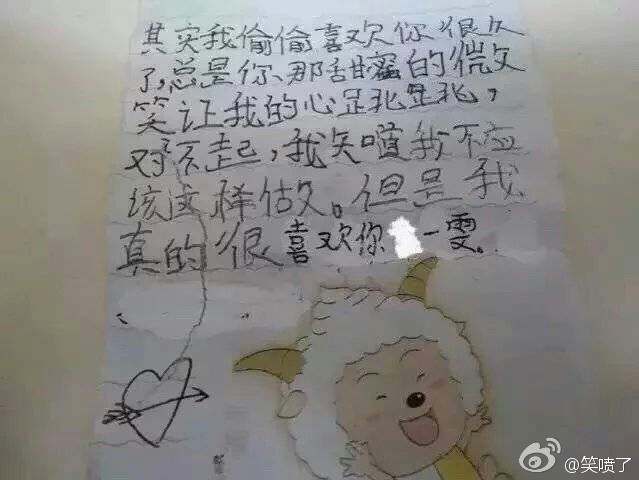 其实我偷偷喜欢你很久
了,总是你那甜蜜的微
笑让我的心跳跳,
对不起,我知道我不应
该这样做。但是我
真的很喜欢你 一雯。
@笑喷了